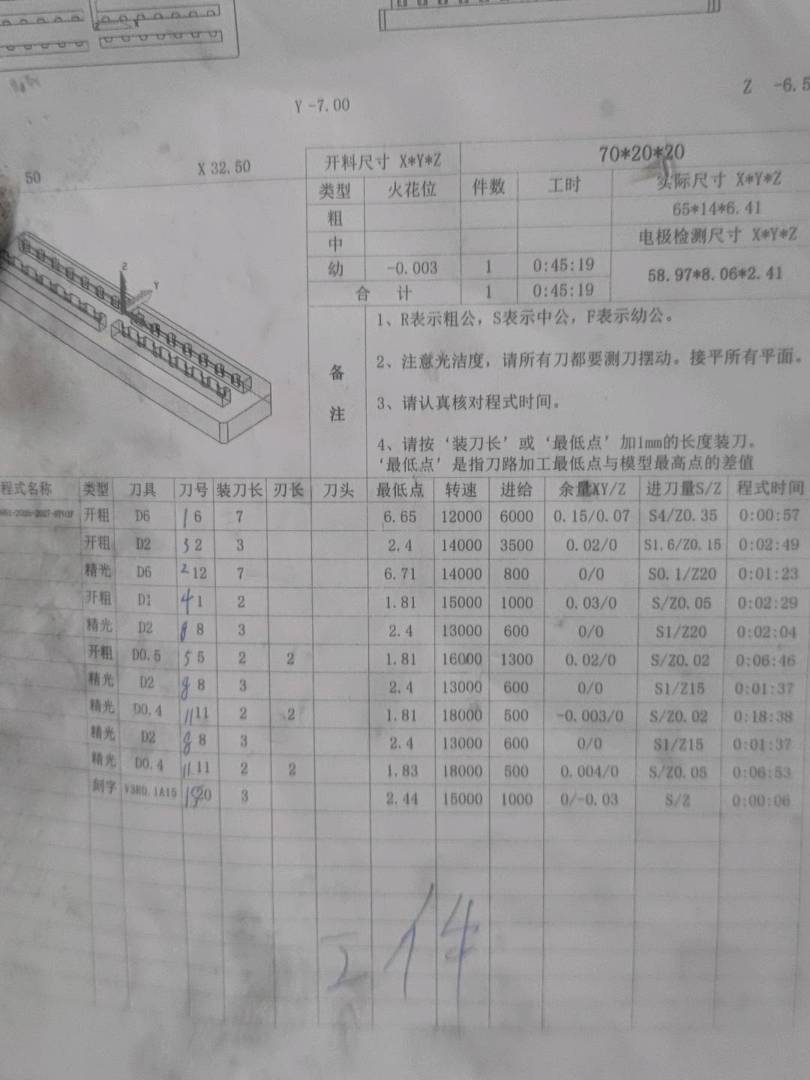 Z -6.5
Y -7.00
50
X 32.50
开料尺寸 X*Y*Z 70*20*20
类型 火花位 件数 工时 实际尺寸 X*Y*Z
粗 65*14*6.41
中 电极检测尺寸 X*Y*Z
幼 -0.003 1 0:45:19 58.97*8.06*2.41
合 计 1 0:45:19
Z
Y
备注
1、R表示粗公，S表示中公，F表示幼公。
2、注意光洁度，请所有刀都要测刀摆动。接平所有平面。
3、请认真核对程式时间。
4、请按‘装刀长’或‘最低点’加1mm的长度装刀。
‘最低点’是指刀路加工最低点与模型最高点的差值
程式名称 类型 刀具 刀号 装刀长 刃长 刀头 最低点 转速 进给 余量XY/Z 进刀量S/Z 程式时间
开粗 D6 1 6 7 6.65 12000 6000 0.15/0.07 S4/Z0.35 0:00:57
开粗 D2 3 2 3 2.4 14000 3500 0.02/0 S1.6/Z0.15 0:02:49
精光 D6 2 12 7 6.71 14000 800 0/0 S0.1/Z20 0:01:23
开粗 D1 4 1 2 1.81 15000 1000 0.03/0 S/Z0.05 0:02:29
精光 D2 8 8 3 2.4 13000 600 0/0 S1/Z20 0:02:04
开粗 D0.5 5 5 2 2 1.81 16000 1300 0.02/0 S/Z0.02 0:06:46
精光 D2 8 8 3 2.4 13000 600 0/0 S1/Z15 0:01:37
精光 D0.4 11 11 2 2 1.81 18000 500 -0.003/0 S/Z0.02 0:18:38
精光 D2 8 8 3 2.4 13000 600 0/0 S1/Z15 0:01:37
精光 D0.4 11 11 2 2 1.83 18000 500 0.004/0 S/Z0.05 0:06:53
刻字 3 2.44 15000 1000 0/-0.03 S/Z 0:00:06
14